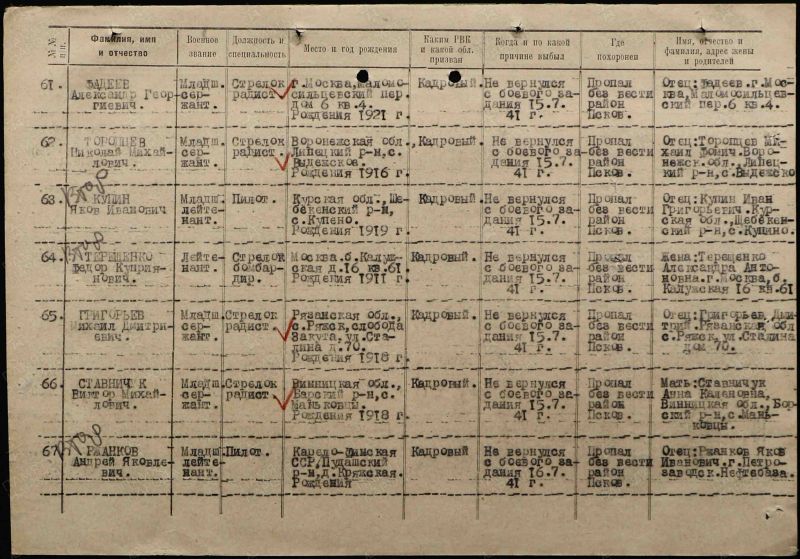 №№ п.п.
Фамилия, имя и отчество
Военное звание
Должность и специальность
Место и год рождения
Каким РВК и какой обл. призван
Когда и по какой причине выбыл
Где похоронен
Имя, отчество и фамилия, адрес жены и родителей
61.
ФАДЕЕВ
Александр Геор-
гиевич.
Младш.
сер-
жант.
Стрелок
радист
г.Москва, Маломо-
сильцевский пер.
дом 6 кв.4.
Рождения 1921 г.
Кадровый.
Не вернулся
с боевого за-
дания 15.7.
41 г.
Пропал
без вести
район
Псков.
Отец:Фадеев.г.Мос-
ква,Маломосильцев-
ский пер.6 кв.4.
62.
ТОРОПЦЕВ
Николай Михай-
лович.
Младш.
сер-
жант.
Стрелок
радист.
Воронежская обл.,
Липецкий р-н,с.
Рождения 1916 г.
Кадровый.
Не вернулся
с боевого за-
дания 15.7.
41 г.
Пропал
без вести
район
Псков.
Отец:Торопцев Ми-
хаил
Воро-
нежск.обл.,Липец-
кий р-н,с.
63.
КУПИН
Яков Иванович
Младш.
лейте-
нант.
Пилот.
Курская обл., Ше-
бекенский р-н,
с.Купено.
Рождения 1919 г.
Кадровый
Не вернулся
с боевого за-
дания 15.7.
41 г.
Пропал
без вести
район
Псков.
Отец:Купин Иван
Григорьевич.Кур-
ская обл.,Шебекен-
ский р-н,с.Купино.
64.
ТЕРЕЩЕНКО
Федор Куприя-
нович.
Лейте-
нант.
Стрелок
бомбар-
дир.
Москва.б.Калуж-
ская д.16 кв.61.
Рождения 1911 г.
Кадровый
Не вернулся
с боевого за-
дания 15.7.
41 г.
Пропал
без вести
район
Псков.
Жена:Терещенко
Александра Анто-
новна.г.Москва,б.
Калужская 16 кв.61
65.
ГРИГОРЬЕВ
Михаил Дмитри-
евич.
Младш.
сер-
жант.
Стрелок
радист.
Рязанская обл.,
с.Ряжск,слобода
Закута,ул.Ста-
лина д.70.
Рождения 1918 г.
Кадровый.
Не вернулся
с боевого за-
дания 15.7.
41 г.
Пропал
без вести
район
Псков.
Отец:Григорьев,Дми-
трий.Рязанская обл
с.Ряжск,ул.Сталина
дом 70.
66
СТАВНИЧУК
Виктор Михай-
лович.
Младш.
сер-
жант.
Стрелок
радист
Винницкая обл.,
Барский р-н,с.
Маньковцы.
Рождения 1918 г.
Кадровый.
Не вернулся
с боевого за-
дания 15.7.
41 г.
Пропал
без вести
район
Псков.
Мать:Ставничук
Анна Каленовна,
Винницкая обл.,Бор-
ский р-н,с.Мань-
ковцы.
67
РЖАНКОВ
Андрей Яковле-
вич.
Младш.
лейте-
нант.
Пилот.
Карело-Финская
ССР,Пудашский
р-н,д.Кряжская.
Рождения
Кадровый
Не вернулся
с боевого за-
дания 16.7.
41 г.
Пропал
без вести
район
Псков.
Отец:Ржанков Яков
Иванович.г.Петро-
заводск.Нефтебаза.